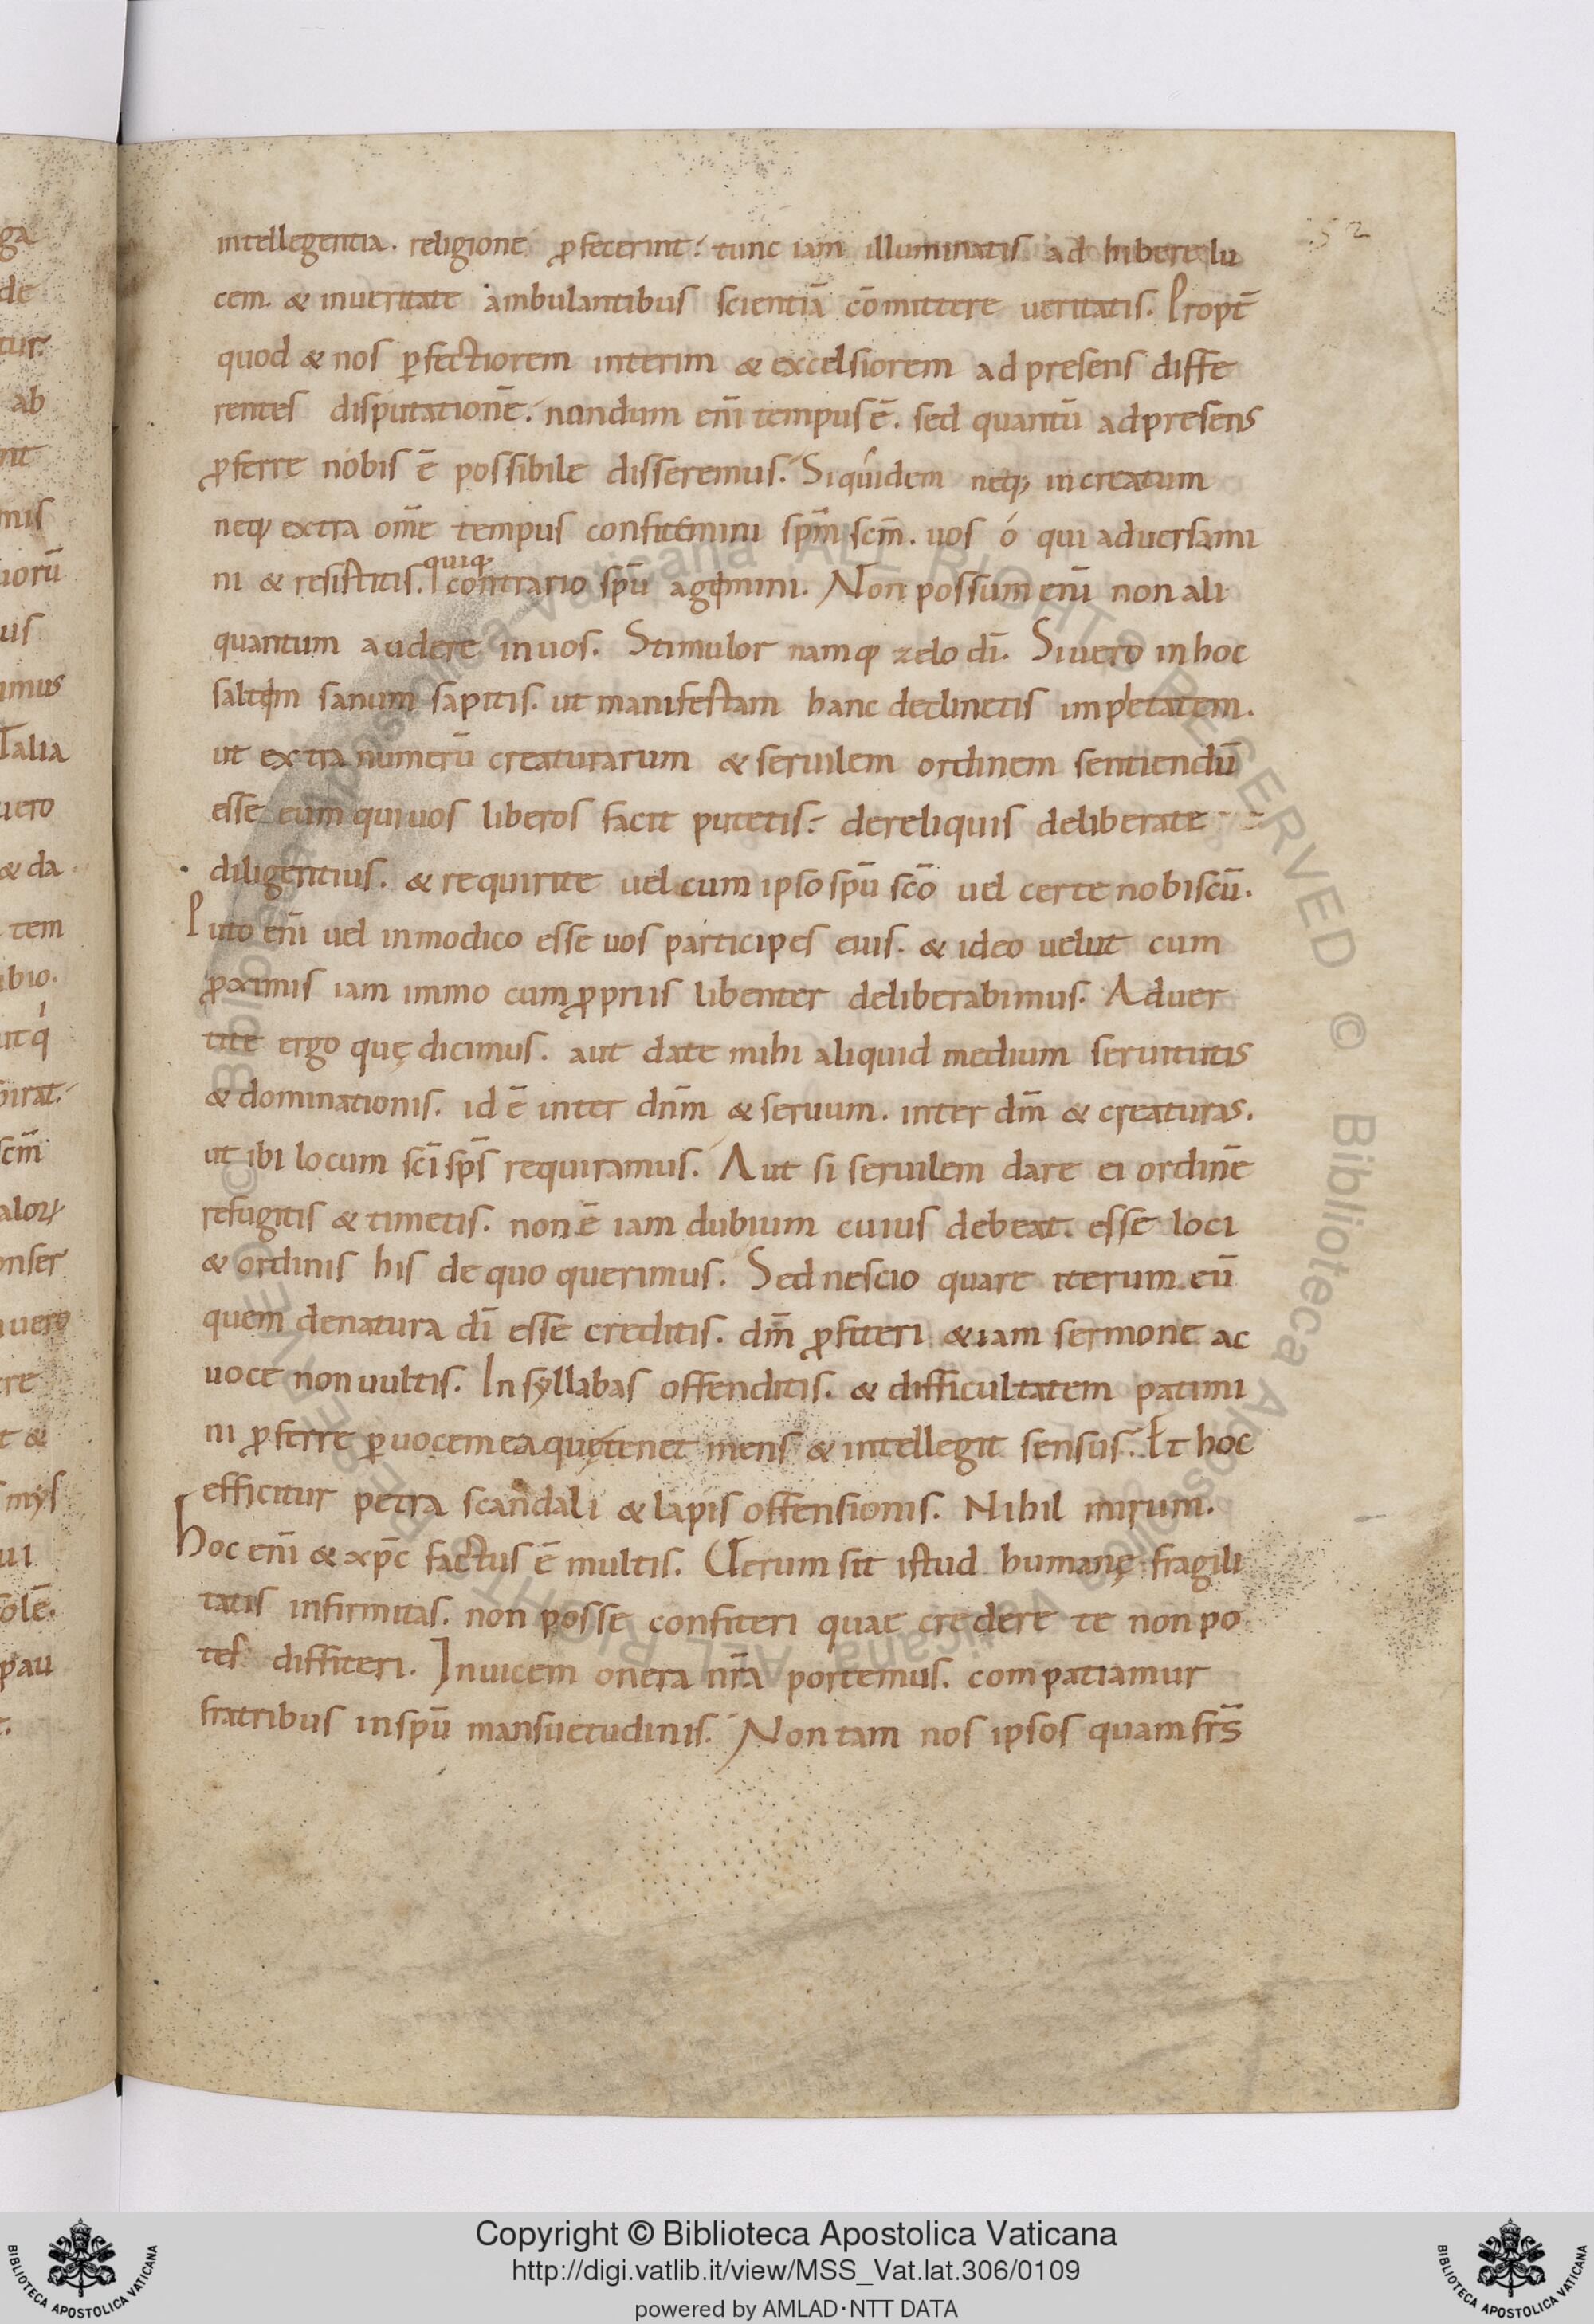 52
intellegentia. religione ꝓfecerint. tunc iam illuminatis adhibere lu
cem. & inueritate ambulantibus scientiā cōmittere ueritatis. Propt̄
quod & nos ꝑfectiorem interim & excelsiorem ad presens diffe
rentes disputationē. nondum eni̅ tempus ē. sed quantū adpresens
ꝓferre nobis ē possibile disseremus. Siquidem neq; increatum
neq; extra om̄e tempus confitemini sp̄m sc̄m. uos ó qui aduersami
ni & resistitis. quiq; contrario spū agemini. Non possum eni̅ non ali
quantum audere inuos. Stimulor namq; zelo dī. Siuero inhoc
saltem sanum sapitis. ut manifestam hanc declinetis impietatem.
ut extra numerū creaturarum & seruilem ordinem sentiendū
esse eum quiuos liberos facit putetis. dereliquis deliberate
diligentius. & requirite uel cum ipso spū scō uel certe nobiscū.
Puto eni̅ uel inmodico esse uos participes eius. & ideo uelut cum
ꝓximis iam immo cum ꝓpriis libenter deliberabimus. Aduer
tite ergo quę dicimus. aut date mihi aliquid medium seruitutis
& dominationis. id ē inter dn̄m & seruum. inter dm̄ & creaturas.
ut ibi locum scī sp̄s requiramus. Aut si seruilem dare ei ordinē
refugitis & timetis. non ē iam dubium cuius debeat. esse loci
& ordinis his de quo querimus. Sed nescio quare iterum eū
quem denatura dī esse creditis. dm̄ ꝓfiteri &iam sermone ac
uoce non uultis. In syllabas offenditis. & difficultatem patimi
ni ꝓferre ꝑ uocem ea quę tenet mens & intellegit sensus. Et hoc
efficitur petra scandali & lapis offensionis. Nihil mirum.
Hoc eni̅ & xp̄c factus ē multis. Uerum sit istud humanę fragili
tatis infirmitas. non posse confiteri quae credere te non po
tes diffiteri. Inuicem onera nr̄a portemus. compatiamur
fratribus inspū mansuetudinis. Non tam nos ipsos quam fr̄s
Copyright © Biblioteca Apostolica Vaticana
http://digi.vatlib.it/view/MSS_Vat.lat.306/0109
powered by AMLAD·NTT DATA